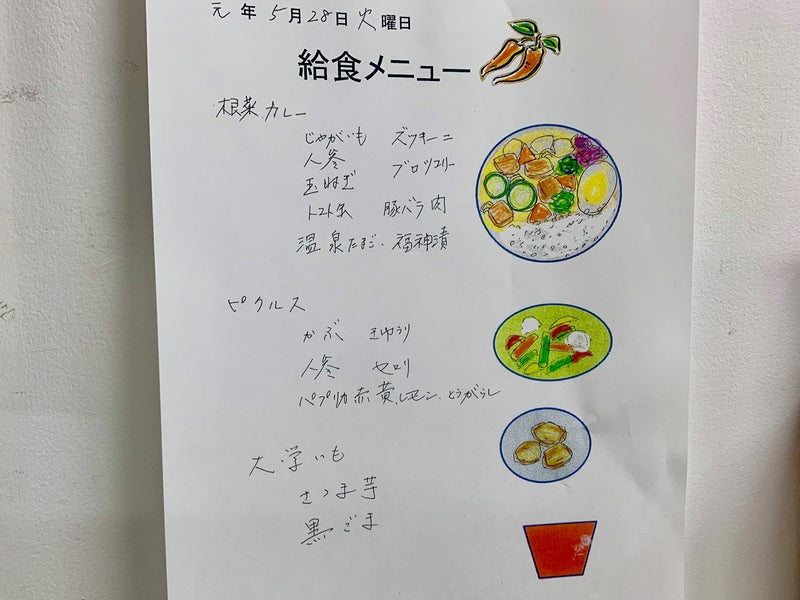 元年5月28日火曜日
給食メニュー
根菜カレー
じゃがいも ズッキーニ
人参 ブロッコリー
玉ねぎ
トマト缶 豚バラ肉
温泉たまご、福神漬
ピクルス
かぶ きゅうり
人参 セロリ
パプリカ赤黄、レモン、とうがらし
大学いも
さつま芋
黒ごま